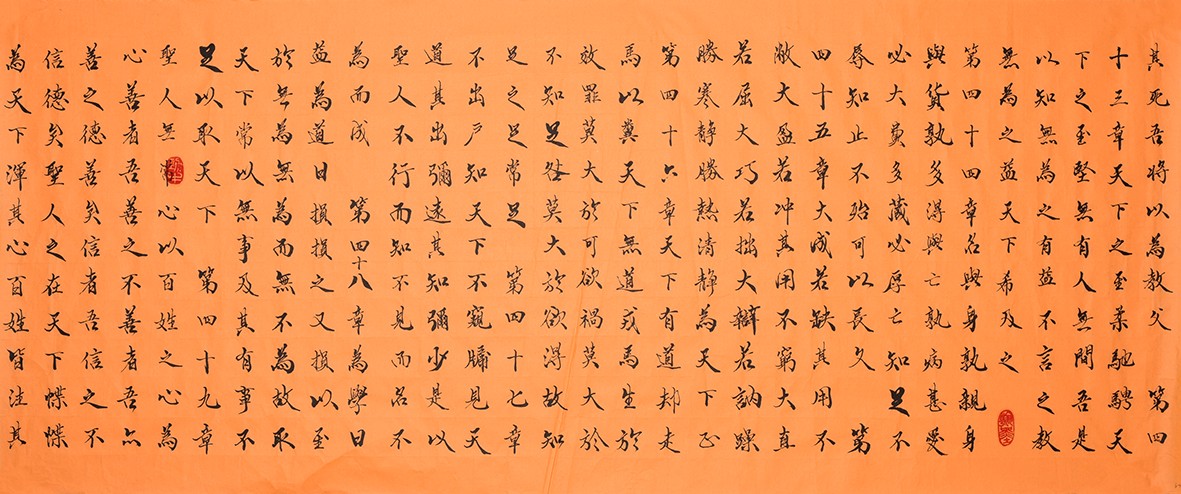 其死吾將以為教父 第四
十三章天下之至柔馳騁天
下之至堅無有人無間吾是
以知無為之有益不言之教
無為之益天下希及之
第四十四章名與身孰親身
與貨孰多得與亡孰病甚愛
必大費多藏必厚亡知足不
辱知止不殆可以長久 第
四十五章大成若缺其用不
敝大盈若冲其用不窮大直
若屈大巧若拙大辯若訥躁
勝寒靜勝熱清靜為天下正
第四十六章天下有道却走
馬以糞天下無道戎馬生於
放罪莫大於可欲禍莫大於
不知足咎莫大於欲得故知
足之足常足 第四十七章
不出户知天下不窺牖見天
道其出彌遠其知彌少是以
聖人不行而知不見而名不
為而成 第四十八章為學日
益為道日損損之又損以至
於無為無為而無不為故取
天下常以無事及其有事不
足以取天下 第四十九章
聖人無常心以百姓之心為
心善者吾善之不善者吾亦
善之德善矣信者吾信之不
信德矣聖人之在天下惵惵
為天下渾其心百姓皆注其